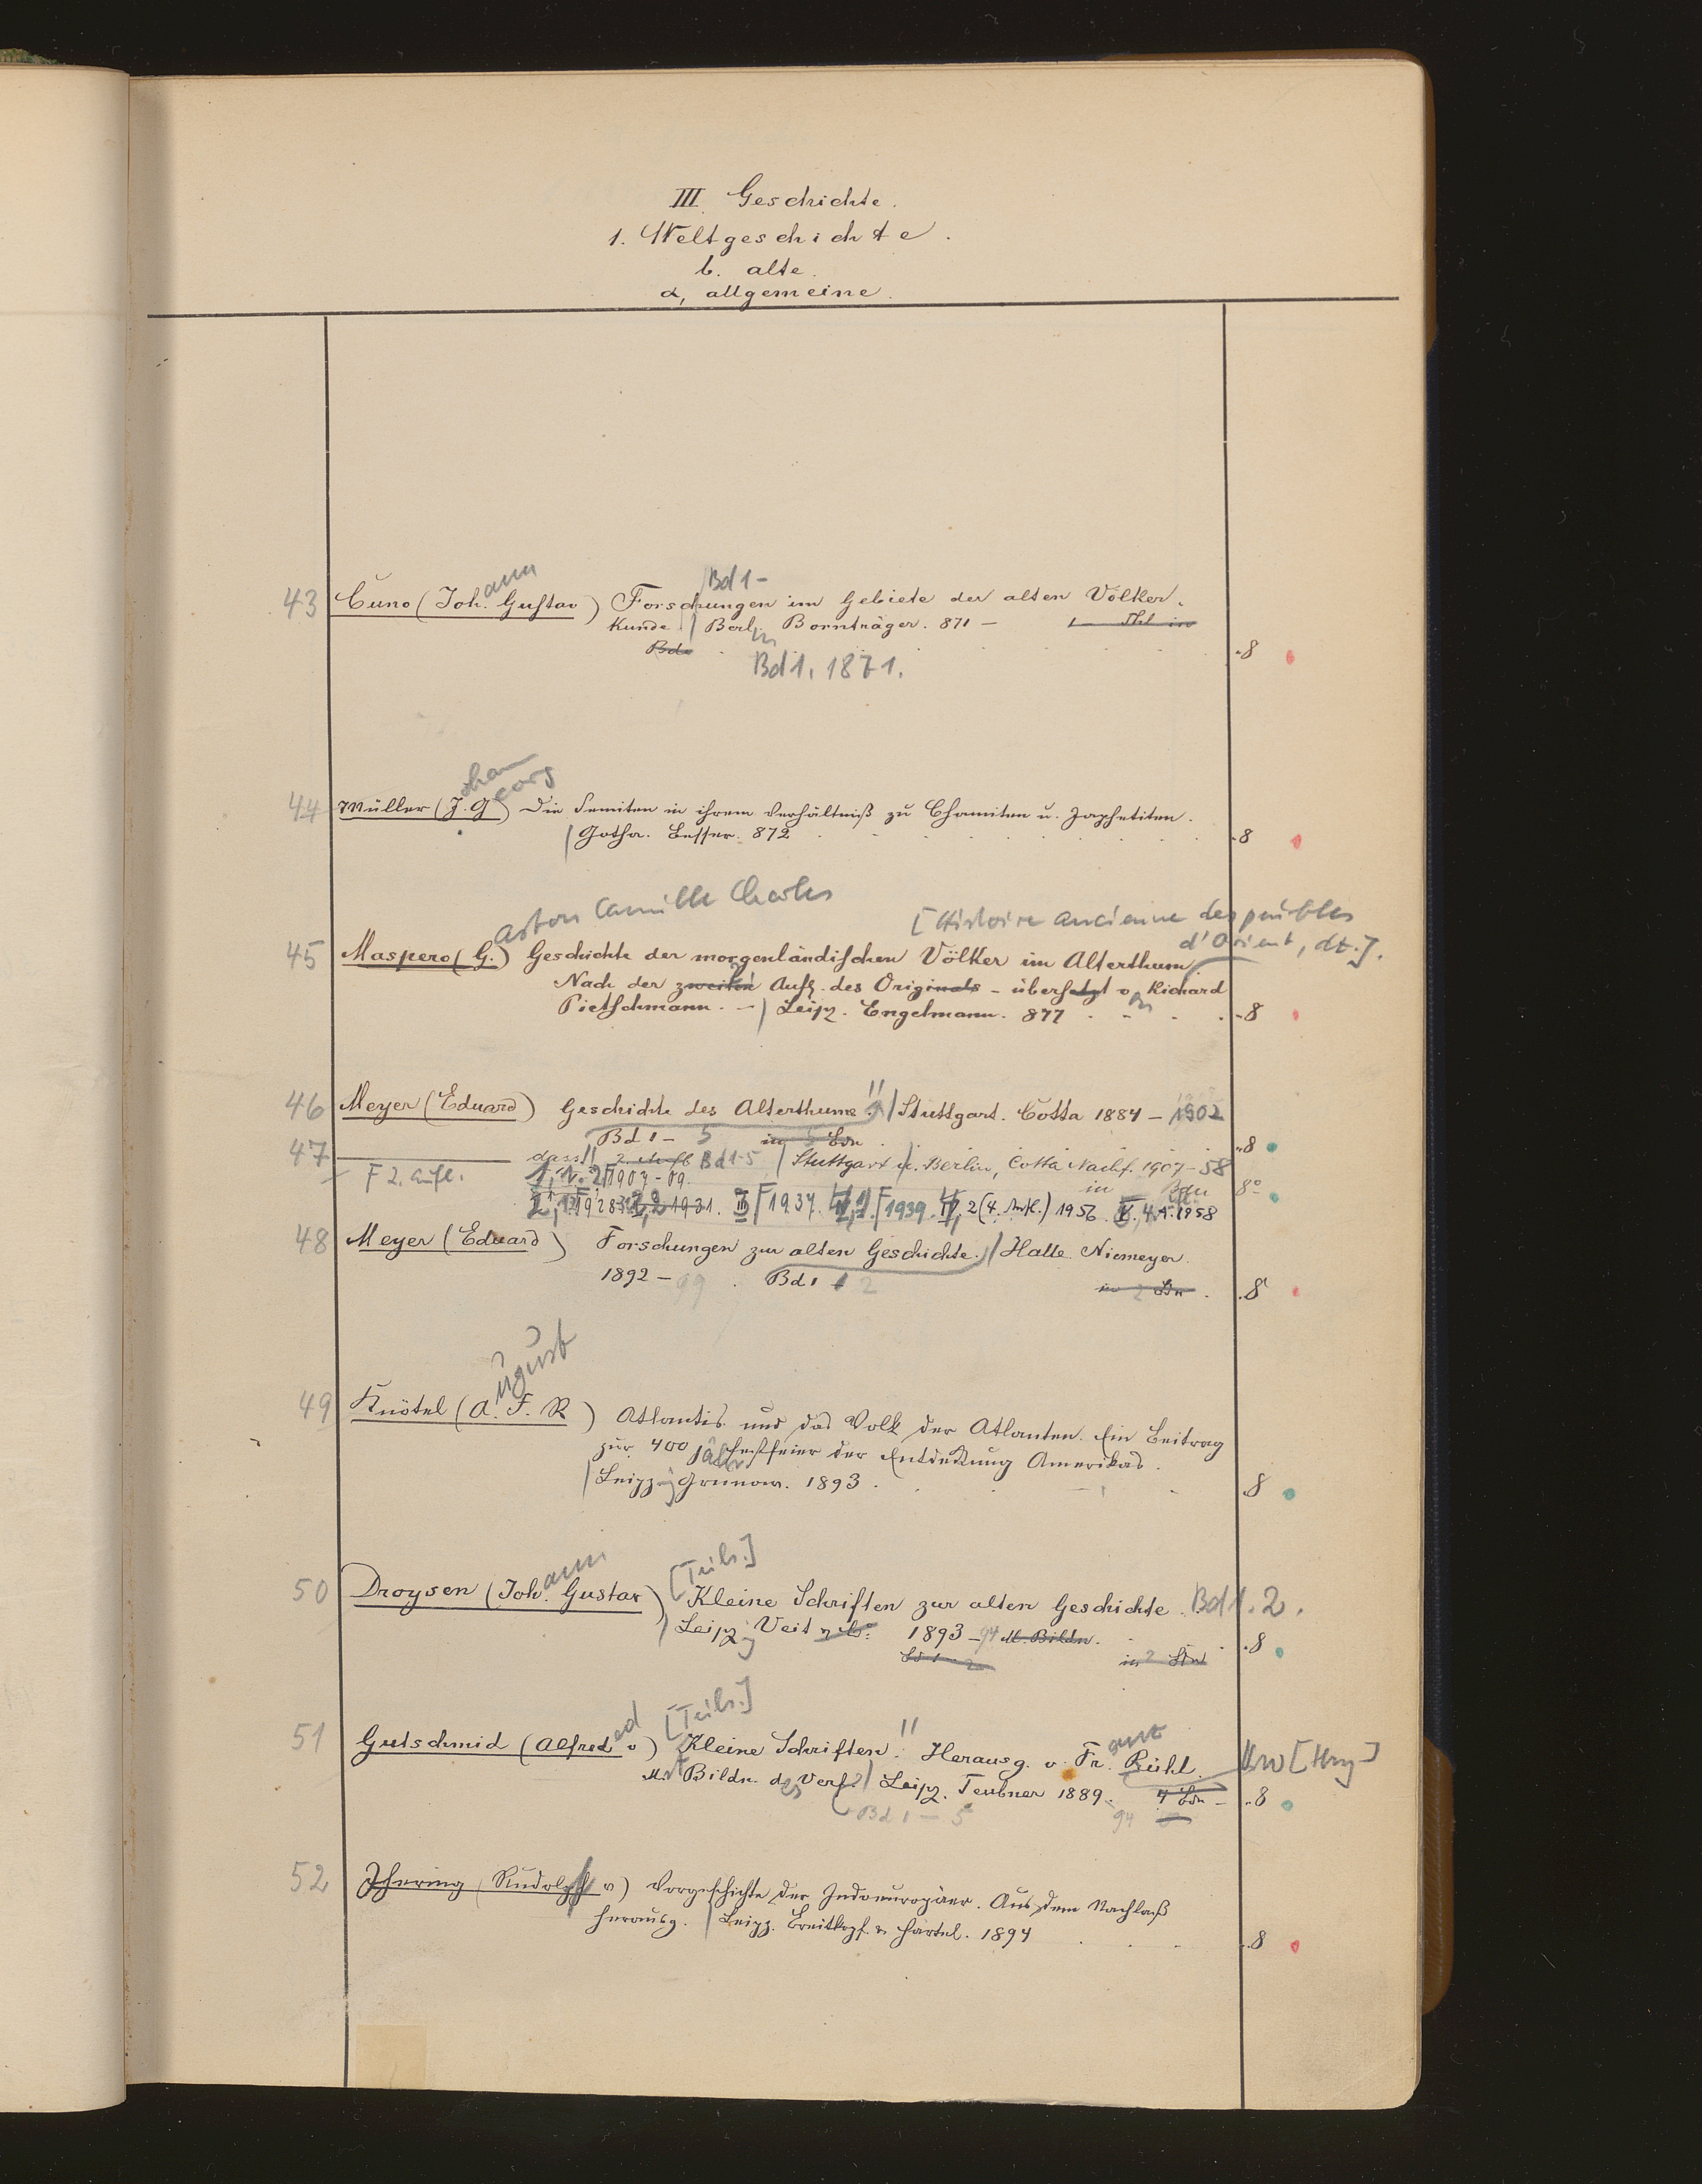 III. Geschichte.
1. Weltgeschichte.
b. alte.
α, allgemeine.
ann Bd 1-
43 Cuno (Joh. Gustav) Forschungen im Gebiete der alten Völker-
kunde / Berlin Bornträger. 871 -
Bde
Bd 1. 1871. 8
ohann eorg
44 Müller (J. G) Die Semiten in ihrem Verhältniß zu Chamiten u. Japhetiten.
/ Gotha. Besser. 872 8
Gaston Camille Charles [Histoire ancienne des peuples
d'Orient, dt.].
45 Maspero (G.) Geschichte der morgenländischen Völker im Alterthum
Nach der zweiten Aufl. des Originals - übersetzt v Richard
Pietschmann. - / Leipz. Engelmann. 877 8
46 Meyer (Eduard) Geschichte des Alterthums / Stuttgart. Cotta 1884 - 1902
Bd 1 - 5 in 5 Bdn 8
47 dass. 2. Aufl. Bd 1-5 / Stuttgart u. Berlin, Cotta Nachf. 1907-58
F 2. Aufl. 1907-09. in 8°
1928 2,2 1931. III 1937. IV,1. 1939. IV, 2 (4. Aufl.) 1956. V. 4. A. 1958
48 Meyer (Eduard) Forschungen zur alten Geschichte. / Halle Niemeyer.
1892 - 99. Bd 1 2 in 2 Bdn. 8
ugust
49 Knötel (A. F. R) Atlantis und das Volk der Atlanten. Ein Beitrag
zur 400 jähr Festfeier der Entdeckung Amerikas.
/ Leipzig Grunow. 1893. 8
ann [Teils.]
50 Droysen (Joh. Gustav) Kleine Schriften zur alten Geschichte. Bd 1. 2.
/ Leipzig Veit 1893 - 94 M. Bildn. 8
Bd 1 - 2 in 2 Bdn
ed [Teils.]
51 Gutschmid (Alfred v) Kleine Schriften. Herausg. v. Fr. Rühl. [Hrsg]
Mit Bildn. des Verf. / Leipz. Teubner 1889 - 4 Bdn - 8
Bd 1 - 5 94
52 Jhering (Rudolph v) Vorgeschichte der Indoeuropäer. Aus dem Nachlaß
herausg. / Leipz. Breitkopf & Härtel. 1894 8